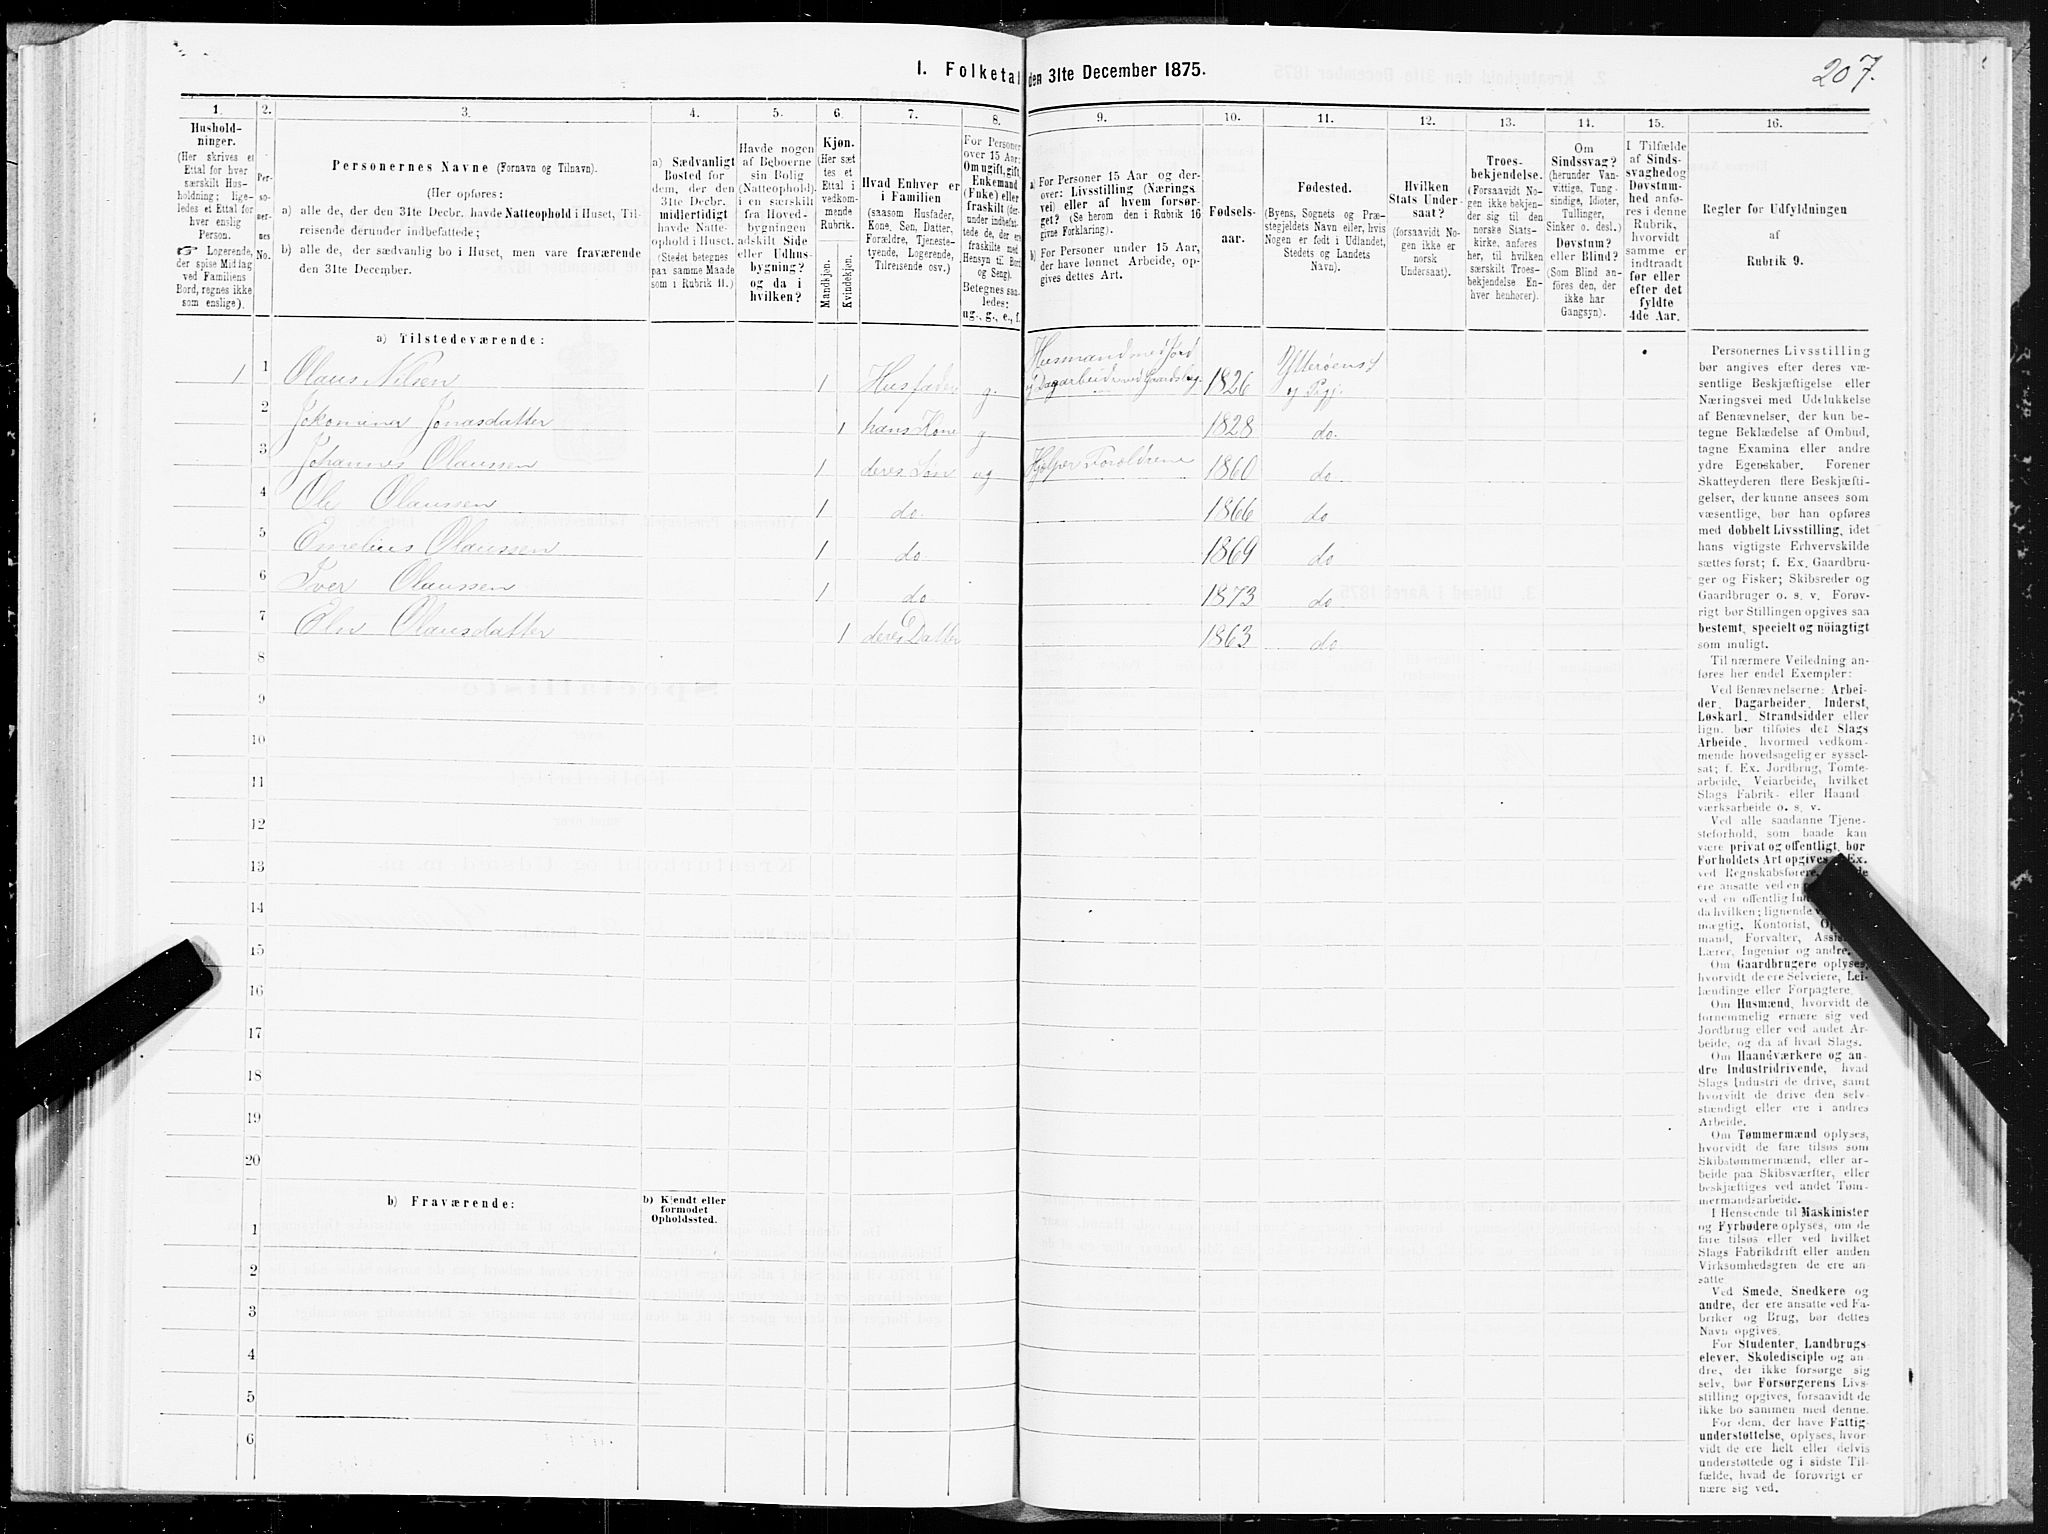 207.
I. Folketal den 31te December 1875.
1. 2. 3. 4. 5. 6. 7. 8. 9. 10. 11. 12. 13. 14. 15. 16.
Hushold-
ninger.
(Her skrives et
Ettal for hver
særskilt Hus-
holdning; lige-
ledes et Ettal for
hver enslig
Person.
☞ Logerende,
der spise Middag
ved Familiens
Bord, regnes ikke
som enslige).
Per-
so-
ner-
nes
No.
Personernes Navne (Fornavn og Tilnavn).
(Her opføres:
a) alle de, der den 31te Decbr. havde Natteophold i Huset, Til-
reisende derunder indbefattede;
b) alle de, der sædvanlig bo i Huset, men vare fraværende
den 31te December.
a) Sædvanligt
Bosted for
dem, der den
31te Decbr.
midlertidigt
havde Natte-
ophold i Huset.
(Stedet betegnes
paa samme Maade
som i Rubrik 11.)
Havde nogen
af Beboerne
sin Bolig
(Natteophold)
i en særskilt
fra Hoved-
bygningen
adskilt Side
eller Udhus-
bygning?
og da i
hvilken?
Kjøn.
(Her sæt
tes et
Ettal i
vedkom-
mende
Rubrik.
Mandkjøn.
Kvindekjøn.
Hvad Enhver er
i Familien
(saasom Husfader,
Kone, Søn, Datter,
Forældre, Tjeneste-
tyende, Logerende,
Tilreisende osv.)
For Personer
over 15 Aar:
Om ugift, gift,
Enkemand
(Enke) eller
fraskilt (der-
under indbefat-
tede de, der ere
fraskilte med
Hensyn til Bord
og Seng).
Betegnes saa-
ledes:
ug., g., e., f.
a) For Personer 15 Aar og der-
over: Livsstilling (Nærings
vei) eller af hvem forsør-
get? (Se herom den i Rubrik 16
givne Forklaring).
b) For Personer under 15 Aar,
der have lønnet Arbeide, op-
gives dettes Art.
Fødsels-
aar.
Fødested.
(Byens, Sognets og Præ-
stegjeldets Navn eller, hvis
Nogen er født i Udlandet,
Stedets og Landets
Navn).
Hvilken
Stats Under-
saat?
(forsaavidt No-
gen ikke er
norsk
Undersaat).
Troes-
bekjendelse.
(Forsaavidt No-
gen ikke bekjen-
der sig til den
norske Stats-
kirke, anføres
her, til hvilken
særskilt Troes-
bekjendelse En-
hver henhører).
Om
Sindssvag?
(herunder Van-
vittige, Tung-
sindige, Idioter,
Tullinger,
Sinker o. desl.)
Døvstum?
eller Blind?
(Som Blind an-
føres den, der
ikke har
Gangsyn).
I Tilfælde
af Sinds-
svaghed og
Døvstum-
hed anfø-
res i denne
Rubrik,
hvorvidt
samme er
indtraadt
før eller
efter det
fyldte
4de Aar.
Regler for Udfyldningen
af
Rubrik 9.
a) Tilstedeværende:
1 1 Olaus Nilsen 1 Husfader g. Husmand med Jord
og Dagarbeider ved Gaardsbrug 1826 Ytterøens S
og Prgj.
2 Jokomina Jonasdatter 1 hans Kone g 1828 do.
3 Johannes Olaussen 1 deres Søn ug Hjælper Foreldrene 1860 do
4 Ole Olaussen 1 do. 1866 do
5 Emelius Olaussen 1 do 1869 do
6 Iver Olaussen 1 do 1873 do
7 Eln Olausdatter 1 deres Datter 1863 do
8
9
10
11
12
13
14
15
16
17
18
19
20
b) Fraværende:
b) Kjendt eller
formodet
Opholdssted.
1
2
3
4
5
6
Personernes Livsstilling
bør angives efter deres væ-
sentlige Beskjæftigelse eller
Næringsvei med Udelukkelse
af Benævnelser, der kun be-
tegne Beklædelse af Ombud,
tagne Examina eller andre
ydre Egenskaber. Forener
Skatteyderen flere Beskjæfti-
gelser, der kunne ansees som
væsentlige, bør han opføres
med dobbelt Livsstilling, idet
hans vigtigste Erhvervskilde
sættes først; f. Ex. Gaardbru-
ger og Fisker; Skibsreder og
Gaardbruger o. s. v. Forøv-
rigt bør Stillingen opgives saa
bestemt, specielt og nöiagtigt
som muligt.
Til nærmere Veiledning an-
føres her endel Exempler:
Ved Benævnelserne: Arbei-
der, Dagarbeider, Inderst,
Løskarl, Strandsidder eller
lign. bør tilføies det Slags
Arbeide, hvormed vedkom-
mende hovedsagelig er syssel-
sat; f. Ex. Jordbrug, Tomte-
arbeide, Veiarbeide, hvilket
Slags Fabrik- eller Haand
værksarbeide o. s. v.
Ved alle saadanne Tjene-
steforhold, som baade kan
være privat og offentligt, bør
Forholdets Art opgives Ex.
ved Regnskabsførere,
ere ansatte ved en
ved en offentlig
da hvilken; lignende
mægtig, Kontorist,
mand, Forvalter,
Lærer, Ingeniør og andre.
Om Gaardbrugere oplyses,
hvorvidt de ere Selveiere, Lei-
lændinge eller Forpagtere.
Om Husmænd, hvorvidt de
fornemmelig ernære sig ved
Jordbrug eller ved andet Ar-
beide, og da af hvad Slags.
Om Haandværkere og an-
dre Industridrivende, hvad
Slags Industri de drive, samt
hvorvidt de drive den selv-
stændigt eller ere i andres
Arbeide.
Om Tømmermænd oplyses,
hvorvidt de fare tilsøs som
Skibstømmermænd, eller ar-
beide paa Skibsværfter, eller
beskjæftiges ved andet Tøm-
mermandsarbeide.
I Henseende til Maskinister
og Fyrbødere oplyses, om de
fare tilsøs eller ved hvilket
Slags Fabrikdrift eller anden
Virksomhedsgren de ere an-
satte
Ved Smede, Snedkere og
andre, der ere ansatte ved Fa-
briker og Brug, bør dettes
Navn opgives.
For Studenter, Landbrugs
elever, Skoledisciple og an-
dre, der ikke forsørge sig
selv, bør Forsørgerens Livs-
stilling opgives, forsaavidt de
ikke bo sammen med denne.
For dem, der have Fattig-
understøttelse, oplyses, hvor-
vidt de ere helt eller delvis
understøttede og i sidste Til-
fælde, hvad de forøvrigt er
nære sig ved.